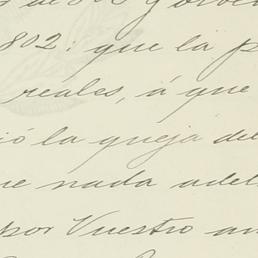 802; que la p
reales, á que
ió la queja del
e nada adel
por Vuestro an